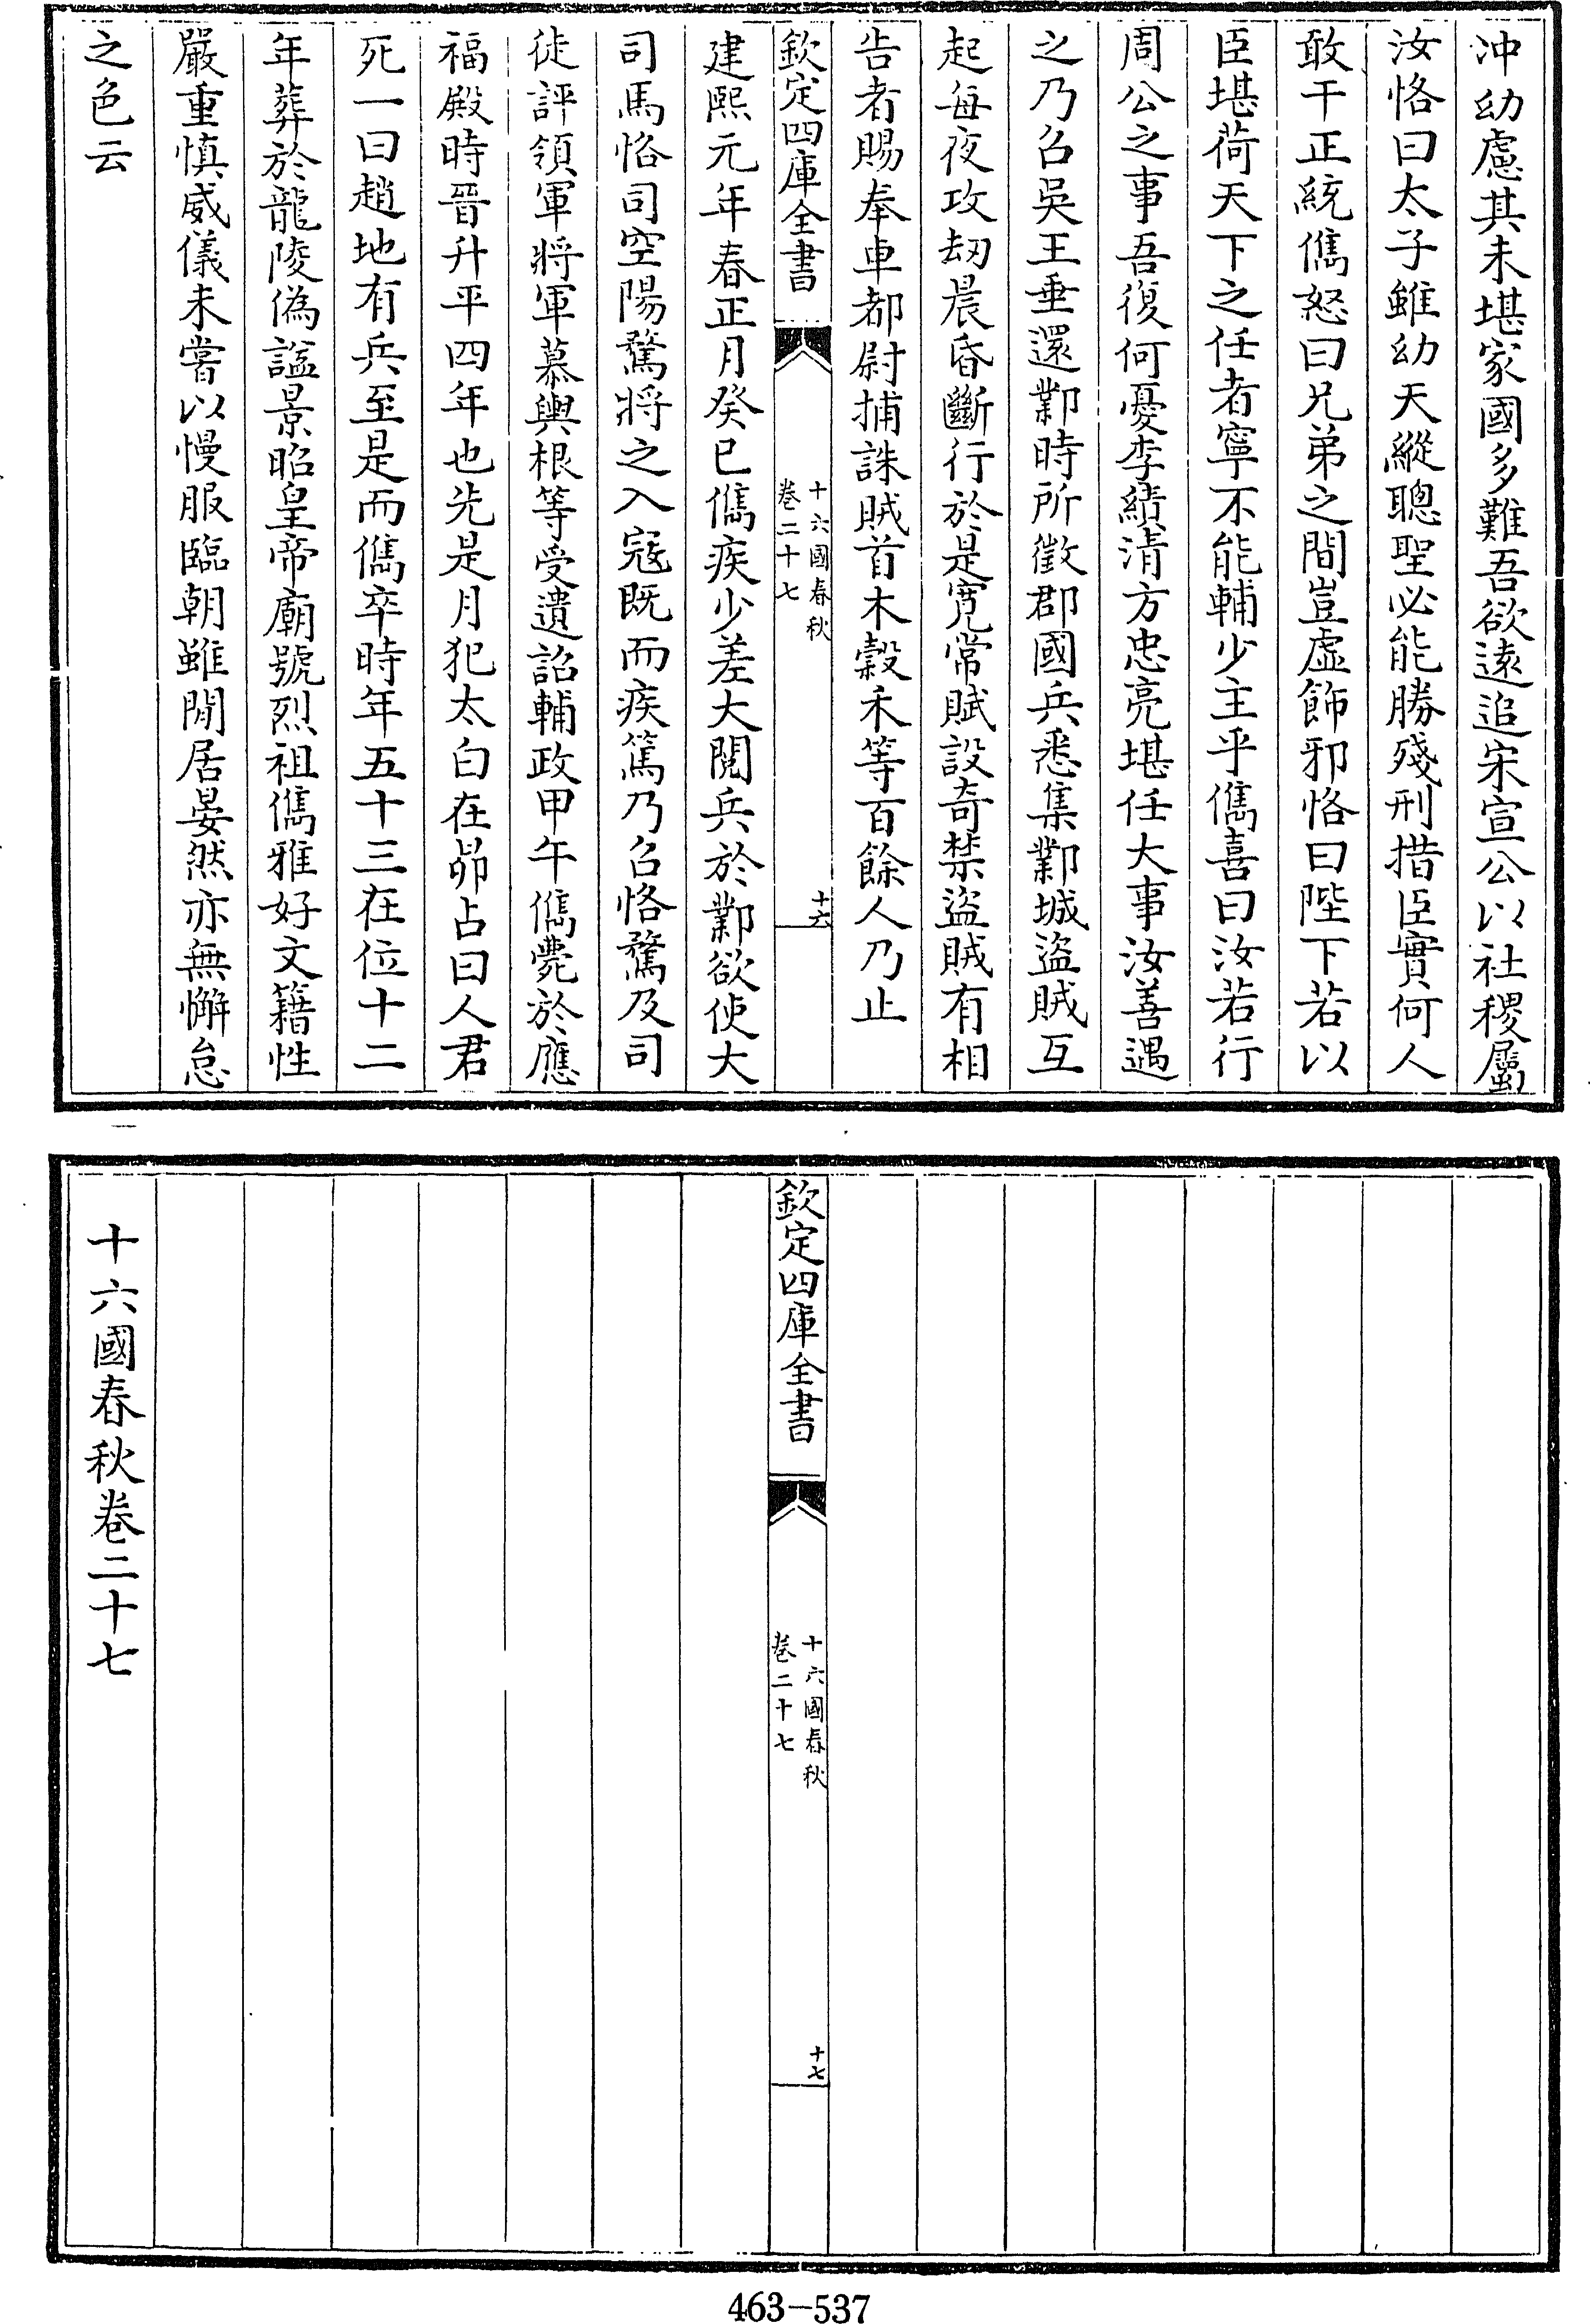 冲幼慮其未堪家國多難吾欲遠追宋宣公以社稷屬
汝恪曰太子雖幼天縱聰聖必能勝殘刑措臣實何人
敢干正統儁怒曰兄弟之間豈虛飾邪恪曰陛下若以
臣堪荷天下之任者寧不能輔少主乎儁喜曰汝若行
周公之事吾復何憂李績清方忠亮堪任大事汝善遇
之乃召吳王垂還鄴時所徵郡國兵悉集鄴城盜賊互
起每夜攻劫晨昏斷行於是寛常賦設奇禁盜賊有相
告者賜奉車都尉捕誅賊首木穀禾等百餘人乃止
欽定四庫全書
十六國春秋
卷二十七
十六
建熙元年春正月癸巳儁疾少差大閱兵於鄴欲使大
司馬恪司空陽騖將之入寇既而疾篤乃召恪騖及司
徒評領軍將軍慕輿根等受遺詔輔政甲午儁薨於應
福殿時晉升平四年也先是月犯太白在昴占曰人君
死一曰趙地有兵至是而儁卒時年五十三在位十二
年葬於龍陵偽謚景昭皇帝廟號烈祖儁雅好文籍性
嚴重慎威儀未嘗以慢服臨朝雖閒居晏然亦無懈怠
之色云
欽定四庫全書
十六國春秋
卷二十七
十七
十六國春秋卷二十七
463-537